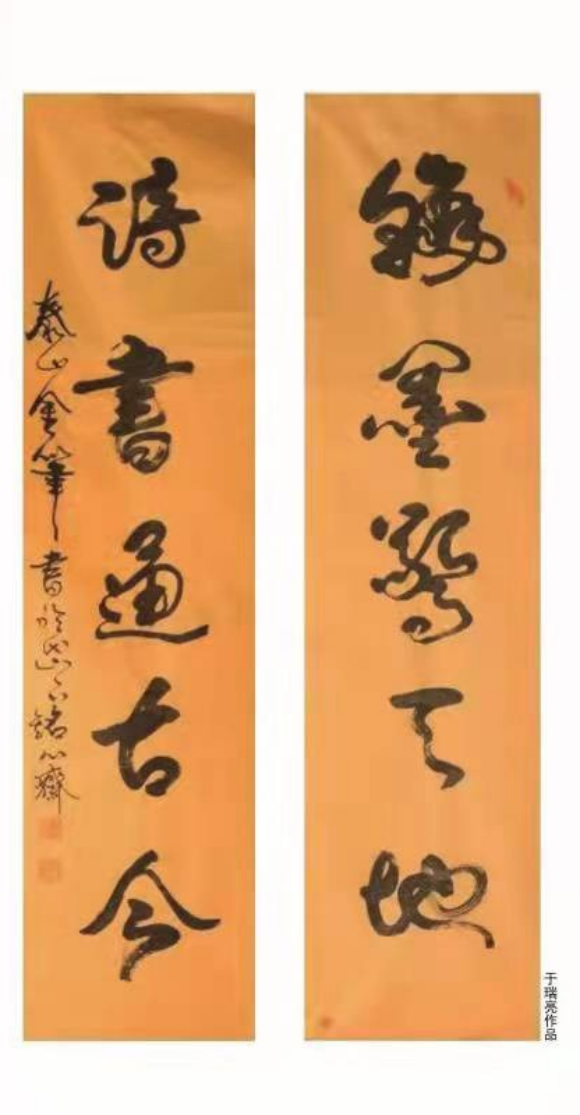 翰墨驚天地
詩書通古今
泰山金筆書於岱下銘心齋
于瑞亮作品